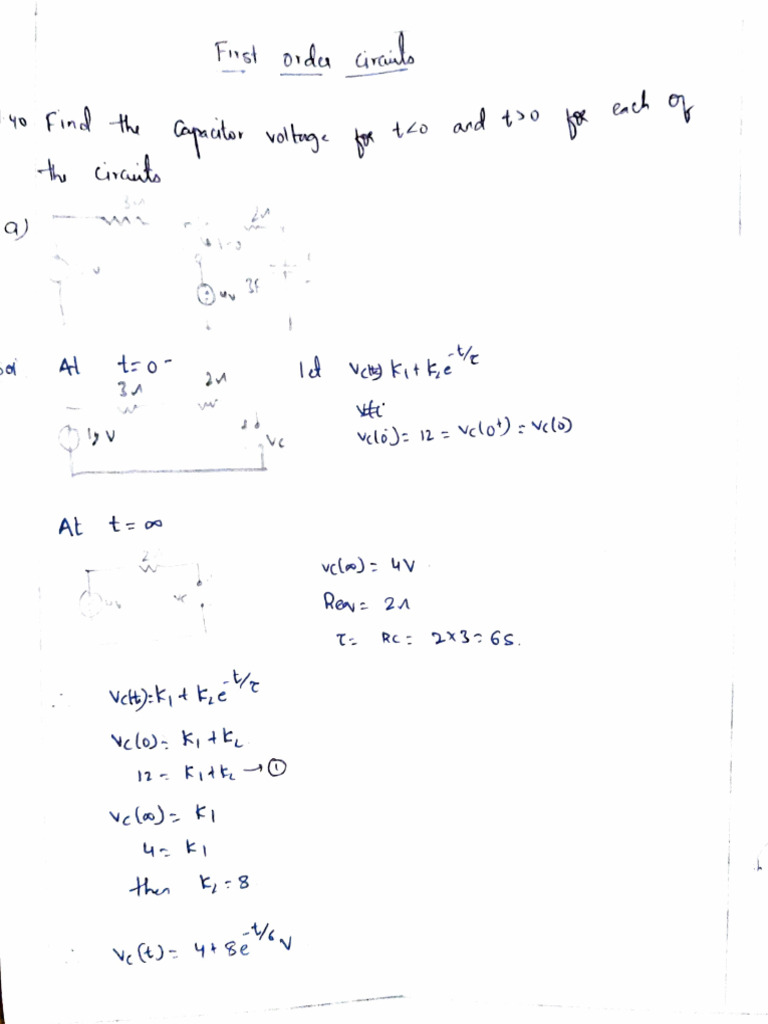 First order circuits
40 Find the Capacitor voltage for t<0 and t>0 for each of
the circuits
a)
3Ω
2Ω
3F
At t=0-
let Vc(t) K₁+K₂e^-t/τ
3Ω
2Ω
V
Vc
Vc(0-)= 12 = Vc(0+) = Vc(0)
At t=∞
2
Vc
Vc(∞)= 4V
Req= 2Ω
τ= RC= 2×3=6S.
∴ Vc(t)=K₁+K₂e^-t/τ
Vc(0)= K₁+K₂
12 = K₁+K₂ →①
Vc(∞)= K₁
4= K₁
then K₂=8
∴ Vc(t)= 4+8e^-t/6 V